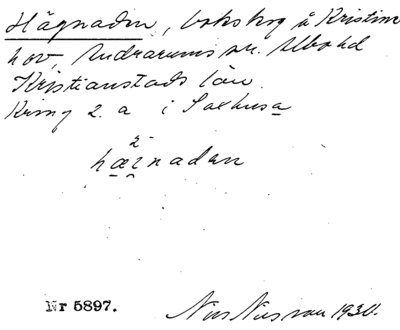 Hägnaden, bokskog å Kristine
hov, Andrarums sn. Albo hd
Kristianstads län.
Kring 2. a i Saxhusa
2
hæinadan
Nr 5897.
Nils Nilsson 1930.